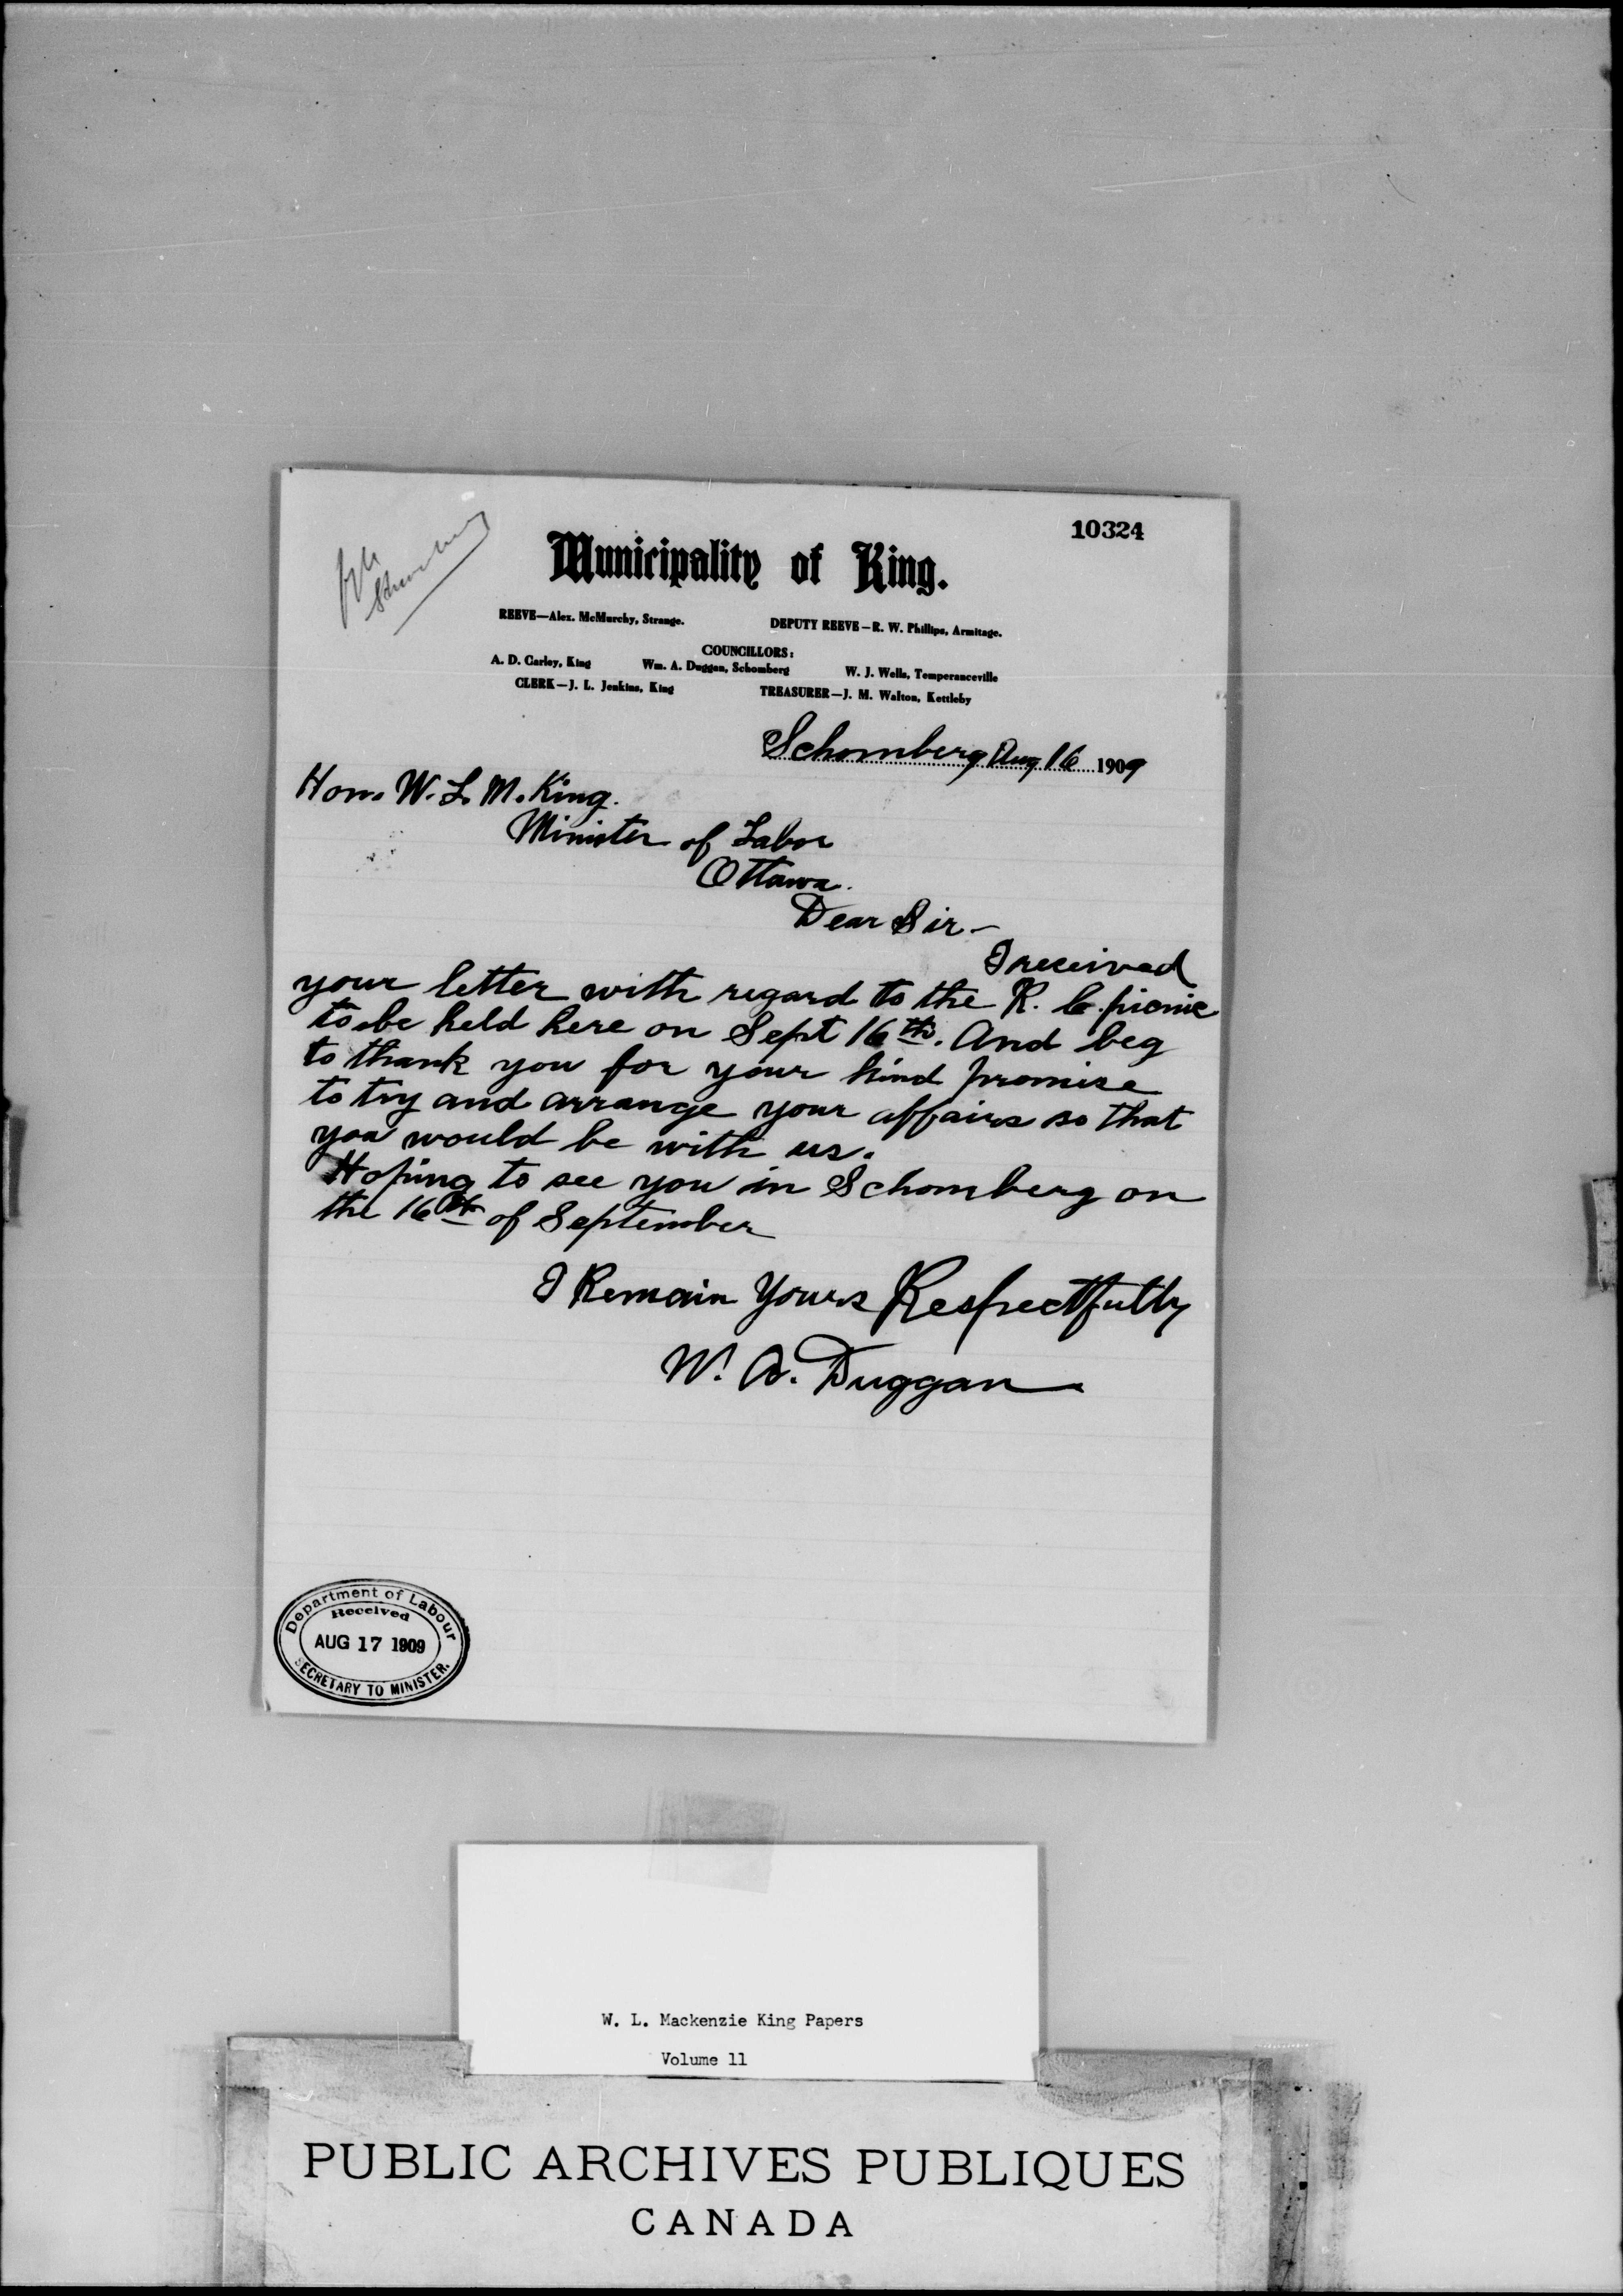 10324
Municipality of King.
REEVE—Alex. McMurchy, Strange. DEPUTY REEVE—R. W. Phillips, Armitage.
COUNCILLORS:
A. D. Carley, King Wm. A. Duggan, Schomberg W. J. Wells, Temperanceville
CLERK—J. L. Jenkins, King TREASURER—J. M. Walton, Kettleby
Schomberg Aug 16 1909
Hon. W. L. M. King.
Minister of Labor
Ottawa.
Dear Sir—
I received
your letter with regard to the R. C. picnic
to be held here on Sept 16th. And beg
to thank you for your kind promise
to try and arrange your affairs so that
you would be with us.
Hoping to see you in Schomberg on
the 16th of September
I Remain Yours Respectfully
W. A. Duggan
Department of Labour
Received
AUG 17 1909
SECRETARY TO MINISTER.
W. L. Mackenzie King Papers
Volume 11
PUBLIC ARCHIVES PUBLIQUES
CANADA